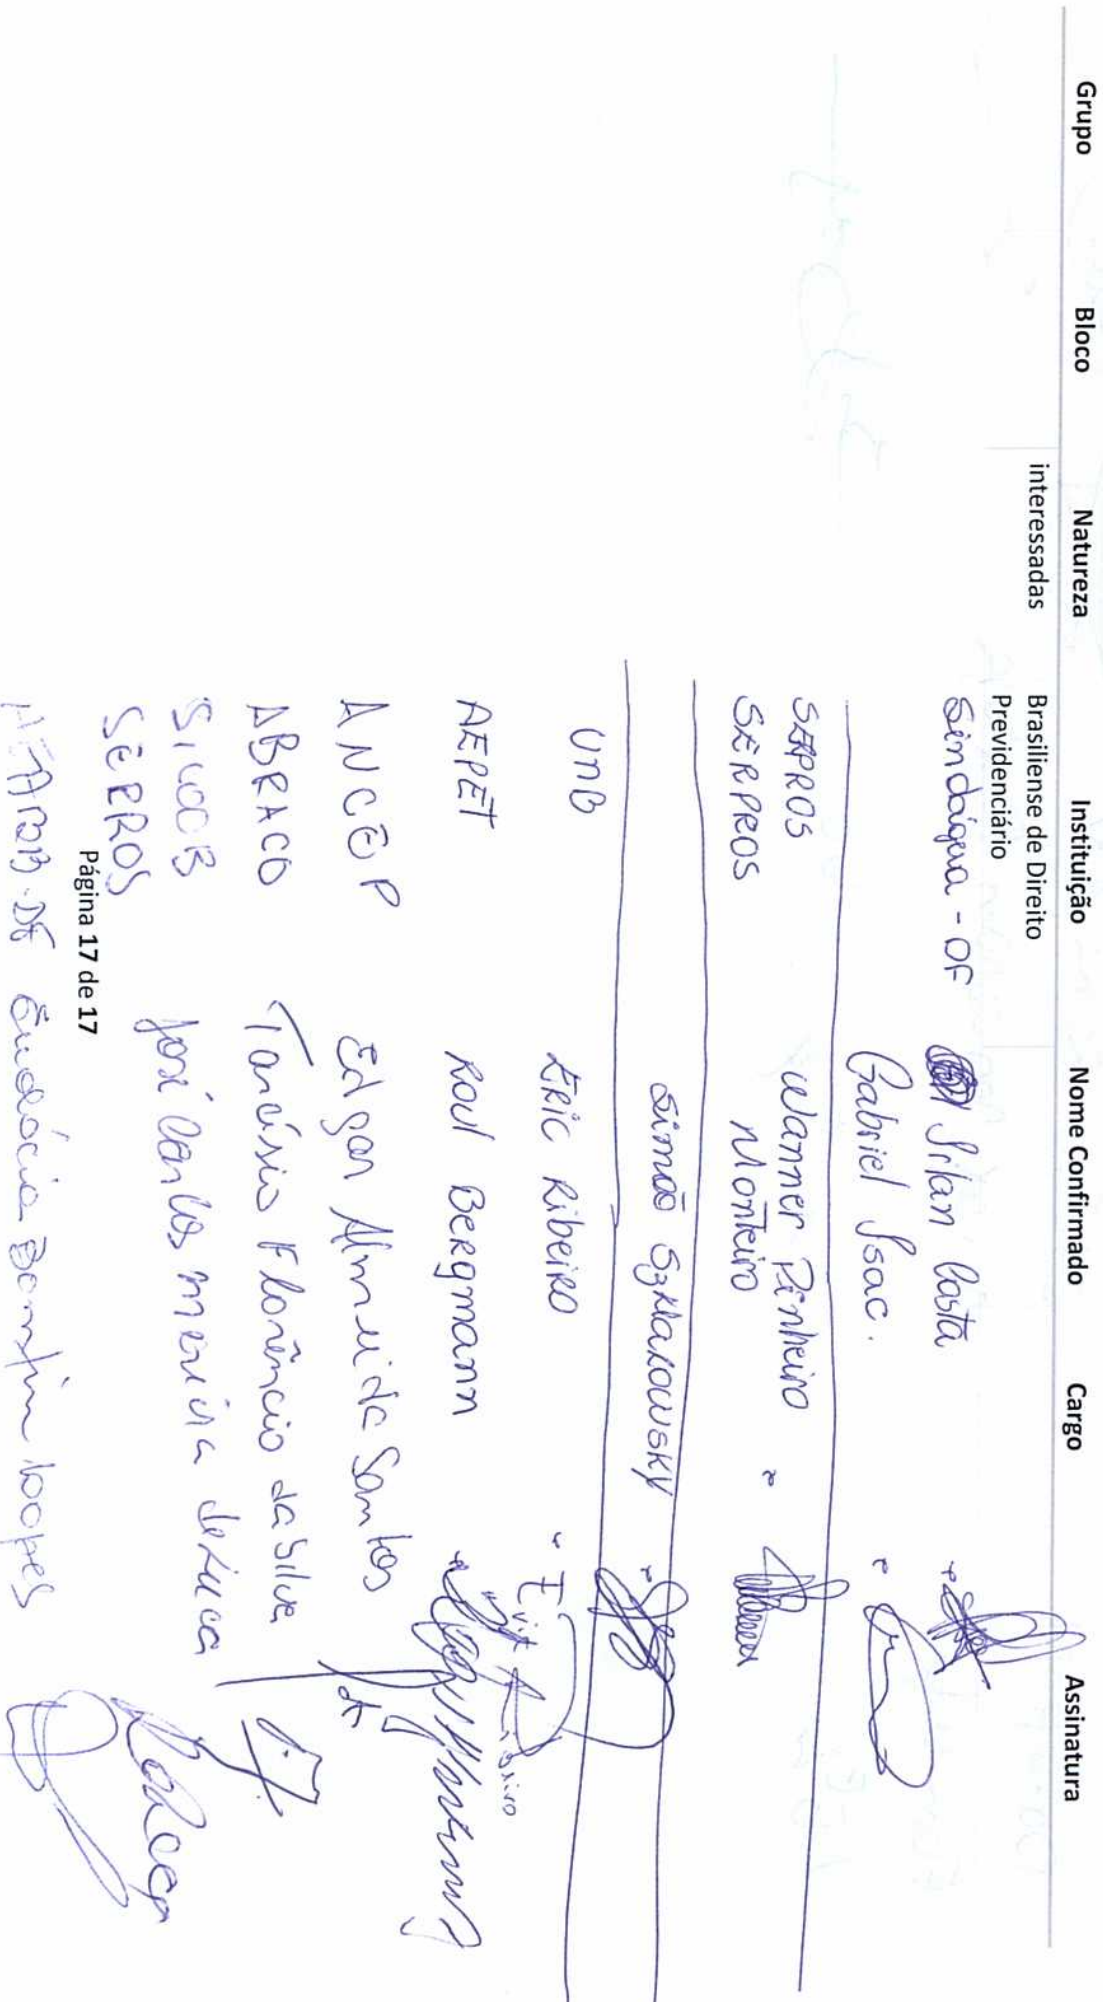 Grupo Bloco Natureza Instituição Nome Confirmado Cargo Assinatura
interessadas Brasiliense de Direito
Previdenciário
Sindágua - DF Irlan Costa
Gabriel Isac.
SERPROS Wanner Pinheiro
SERPROS Monteiro
Simão Szklarowsky
UnB Eric Ribeiro
AEPET Raul Bergmann
ANCEP Edgar Almeida Santos
ABRACO Tarcísio Florêncio da Silva
SICOOB José Carlos
SERPROS
Página 17 de 17
Eudócia Bomfim Lopes